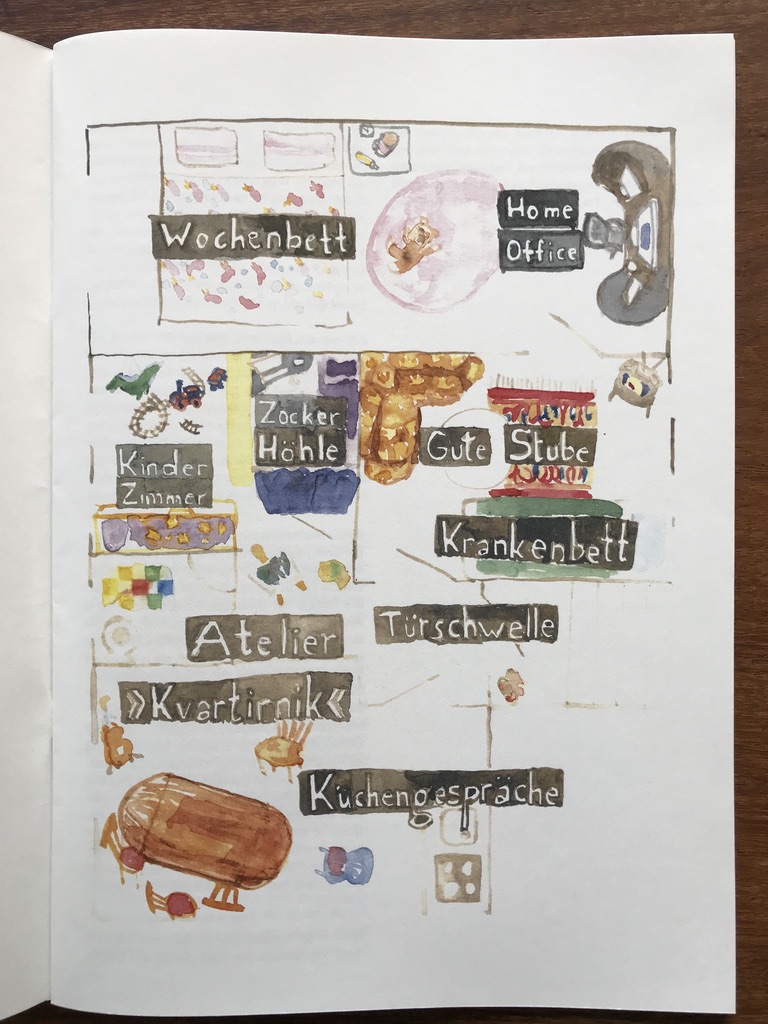 Wochenbett
Home
Office
Zocker
Höhle
Kinder
Zimmer
Gute Stube
Krankenbett
Atelier
Türschwelle
»Kvartirnik«
Küchengespräche